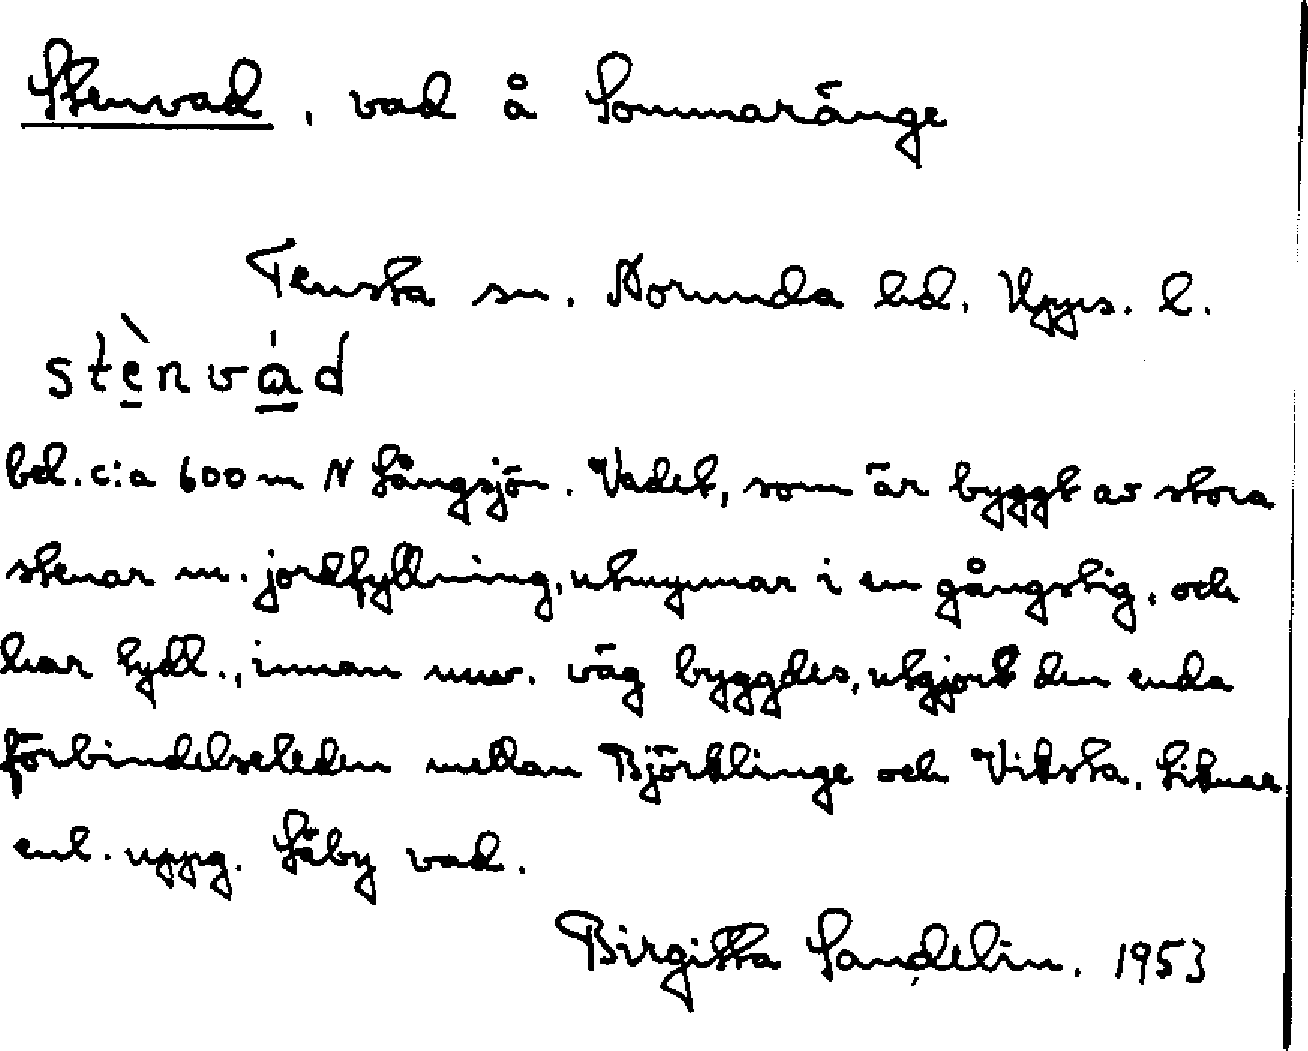 Stenvad, vad å Sommaränge
Tensta sn. Norunda hd. Upps. l.
stènvád
bel. c:a 600 m N Långsjön. Vadet, som är byggt av stora
stenar m. jordfyllning, utmynnar i en gångstig, och
har tydl., innan nuv. väg byggdes, utgjort den enda
förbindelseleden mellan Björklinge och Viksta. Liknar
enl. uppg. Läby vad.
Birgitta Sandelin. 1953